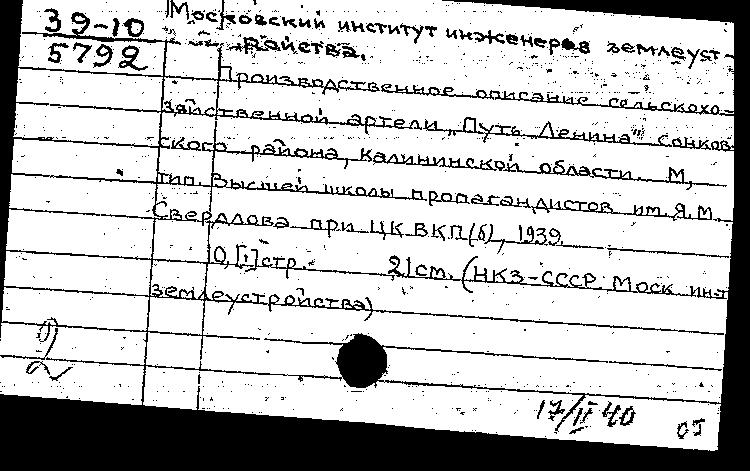 39-10
5792
Московский институт инженеров землеуст-
ройства.
Производственное описание сельскохо-
зяйственной артели „Путь Ленина" Сонков-
ского района, Калининской области. М,
тип. Высшей школы пропагандистов им. Я.М.
Свердлова при ЦК ВКП(б), 1939.
10,[1] стр. 21 см. (НКЗ-СССР Моск инт
землеустройства)
2
17/II 40